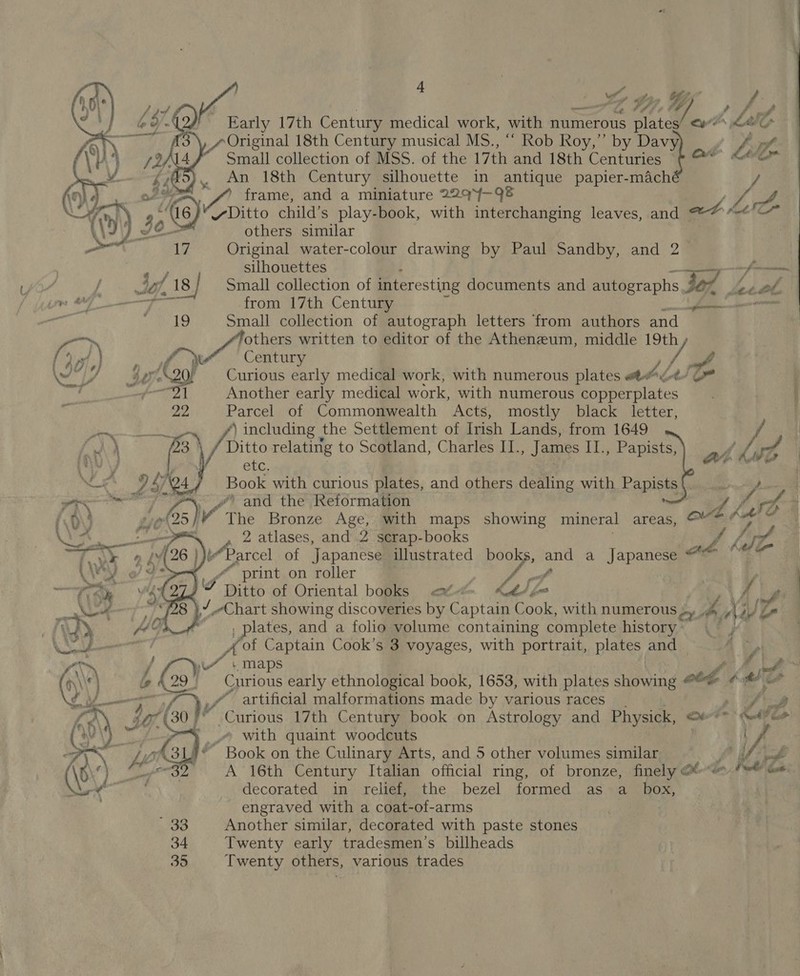 4
12 Early 17th Century medical work, with numerous plates
13 Original 18th Century musical MS., “ Rob Roy,” by Davy
14 Small collection of MSS. of the 17th and 18th Centuries
15 An 18th Century silhouette in antique papier-mâché
frame, and a miniature 2297-98
16 Ditto child’s play-book, with interchanging leaves, and
others similar
17 Original water-colour drawing by Paul Sandby, and 2
silhouettes
18 Small collection of interesting documents and autographs
from 17th Century
19 Small collection of autograph letters from authors and
others written to editor of the Athenæum, middle 19th
Century
20 Curious early medical work, with numerous plates
21 Another early medical work, with numerous copperplates
22 Parcel of Commonwealth Acts, mostly black letter,
including the Settlement of Irish Lands, from 1649
23 Ditto relating to Scotland, Charles II., James II., Papists,
etc.
24 Book with curious plates, and others dealing with Papists
and the Reformation
25 The Bronze Age, with maps showing mineral areas,
2 atlases, and 2 scrap-books
26 Parcel of Japanese illustrated books, and a Japanese
print on roller
27 Ditto of Oriental books
28 Chart showing discoveries by Captain Cook, with numerous
plates, and a folio volume containing complete history
of Captain Cook’s 3 voyages, with portrait, plates and
maps
29 Curious early ethnological book, 1653, with plates showing
artificial malformations made by various races
30 Curious 17th Century book on Astrology and Physick,
with quaint woodcuts
31 Book on the Culinary Arts, and 5 other volumes similar
32 A 16th Century Italian official ring, of bronze, finely
decorated in relief, the bezel formed as a box,
engraved with a coat-of-arms
33 Another similar, decorated with paste stones
34 Twenty early tradesmen’s billheads
35 Twenty others, various trades